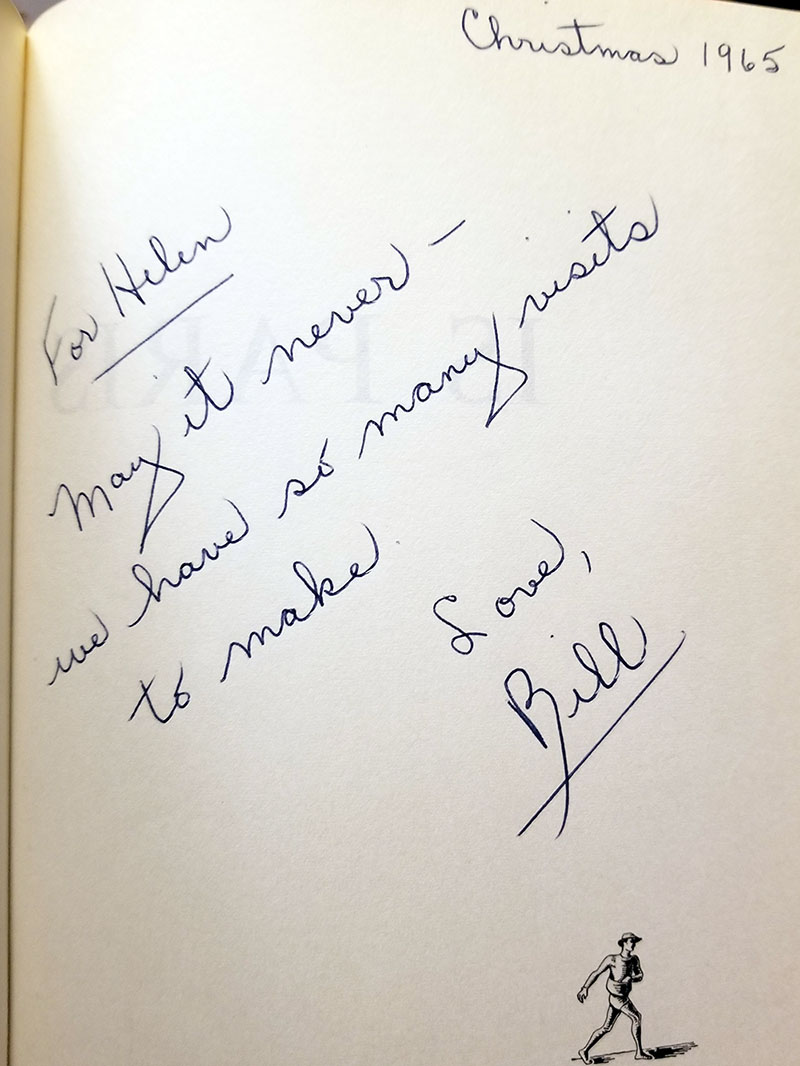 Christmas 1965
For Helen
May it never —
we have so many visits
to make.
Love,
Bill